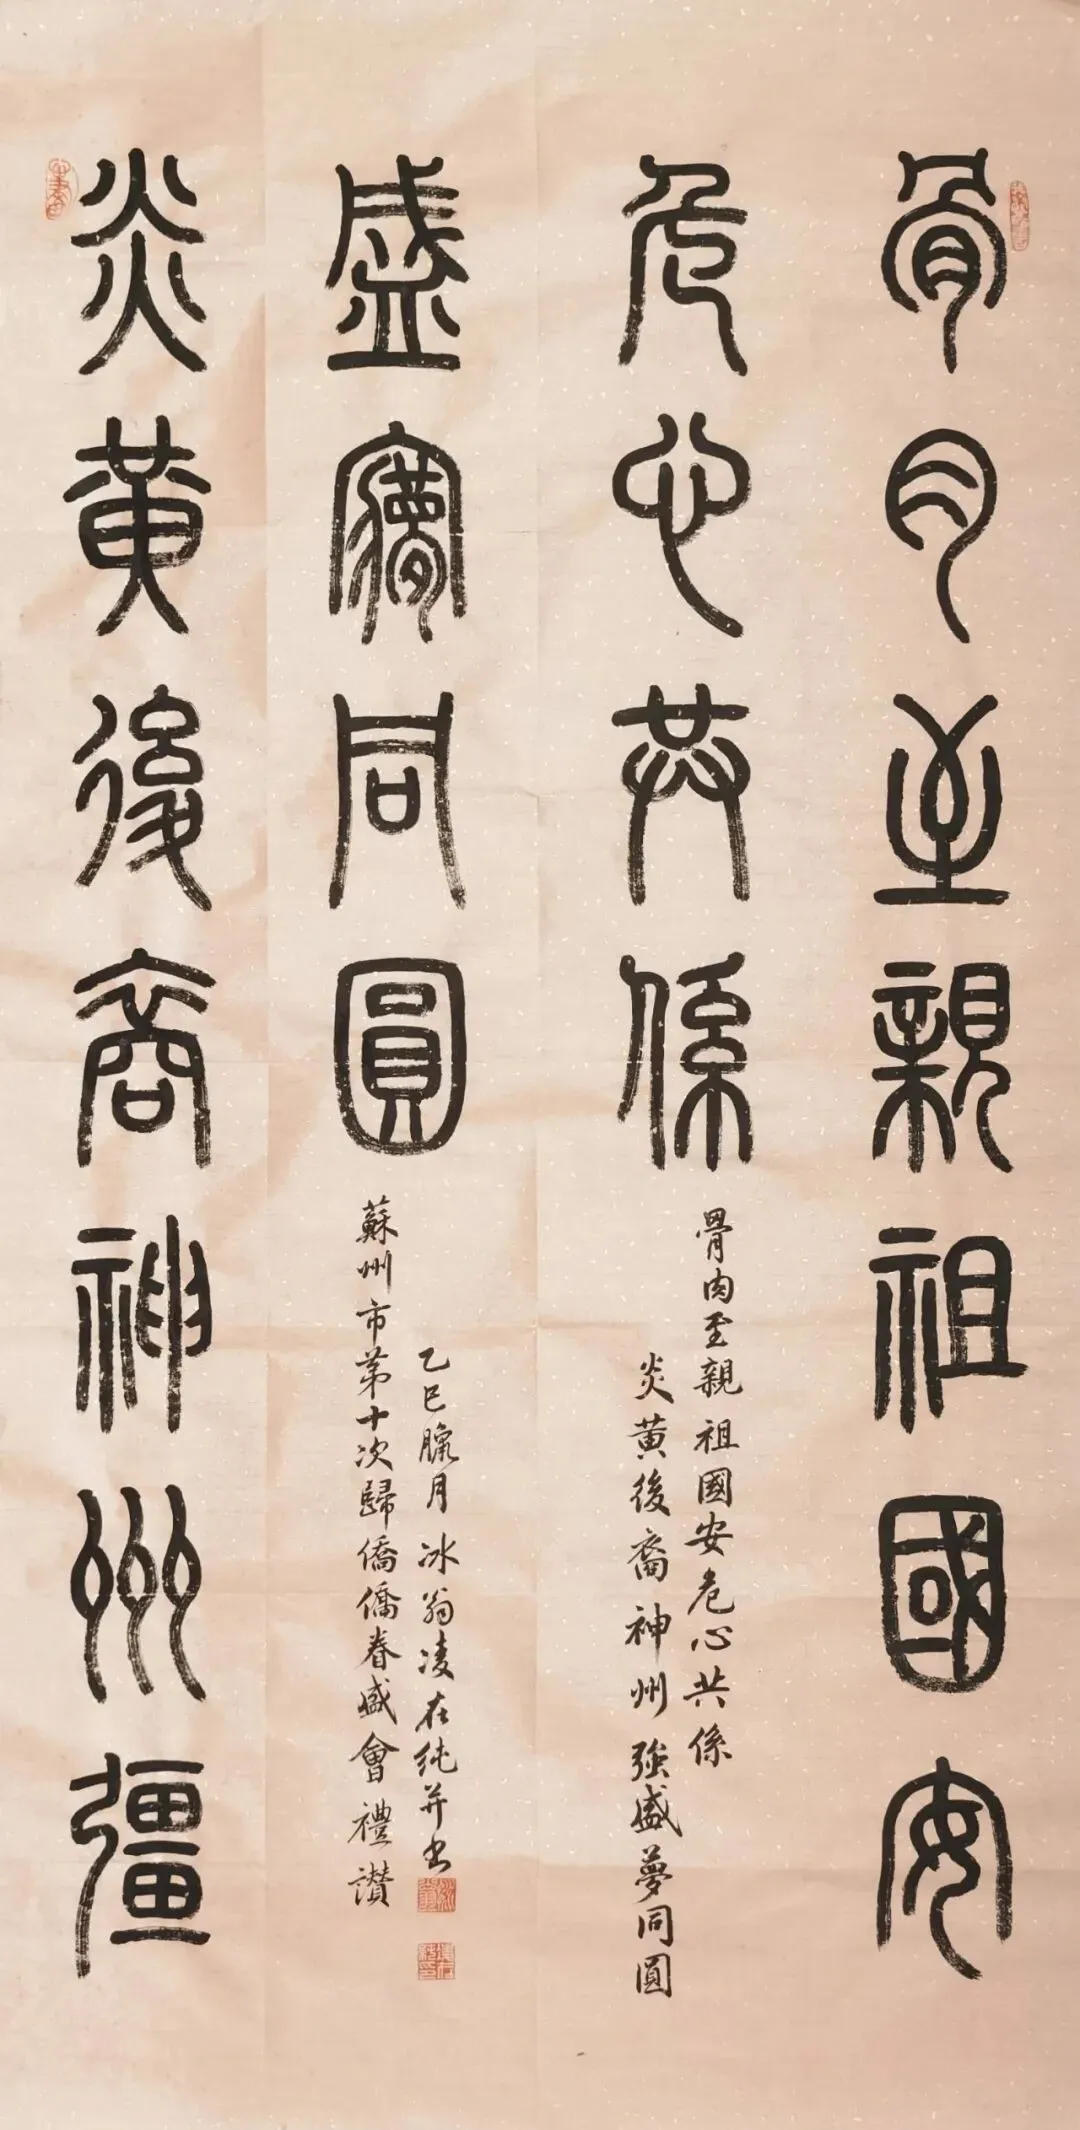 骨肉至親祖國安
危心共係
骨肉至親祖國安危心共係
炎黄後裔神州強盛夢同圓
炎黄後裔神州彊
盛夢同圓
蘇州市第十次歸僑僑眷盛會禮讚
乙巳臘月冰翁凌在純并書